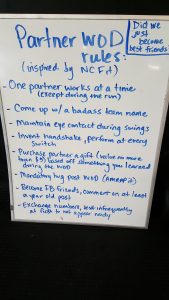 Partner WOD
rules:
(inspired by NCFit)
Did we
just
become
best friends
- One partner works at a time
(except during the run)
- Come up w/ a badass team name
- Maintain eye contact during swings
- Invent handshake, perform at every
switch
- Purchase partner a gift (value no more
than $5) based off something you learned
during the WOD
- Mandatory hug post WOD (AMRAP it)
- Become FB friends, comment on at least
a year old post
- Exchange numbers, text infrequently
at first to not appear needy